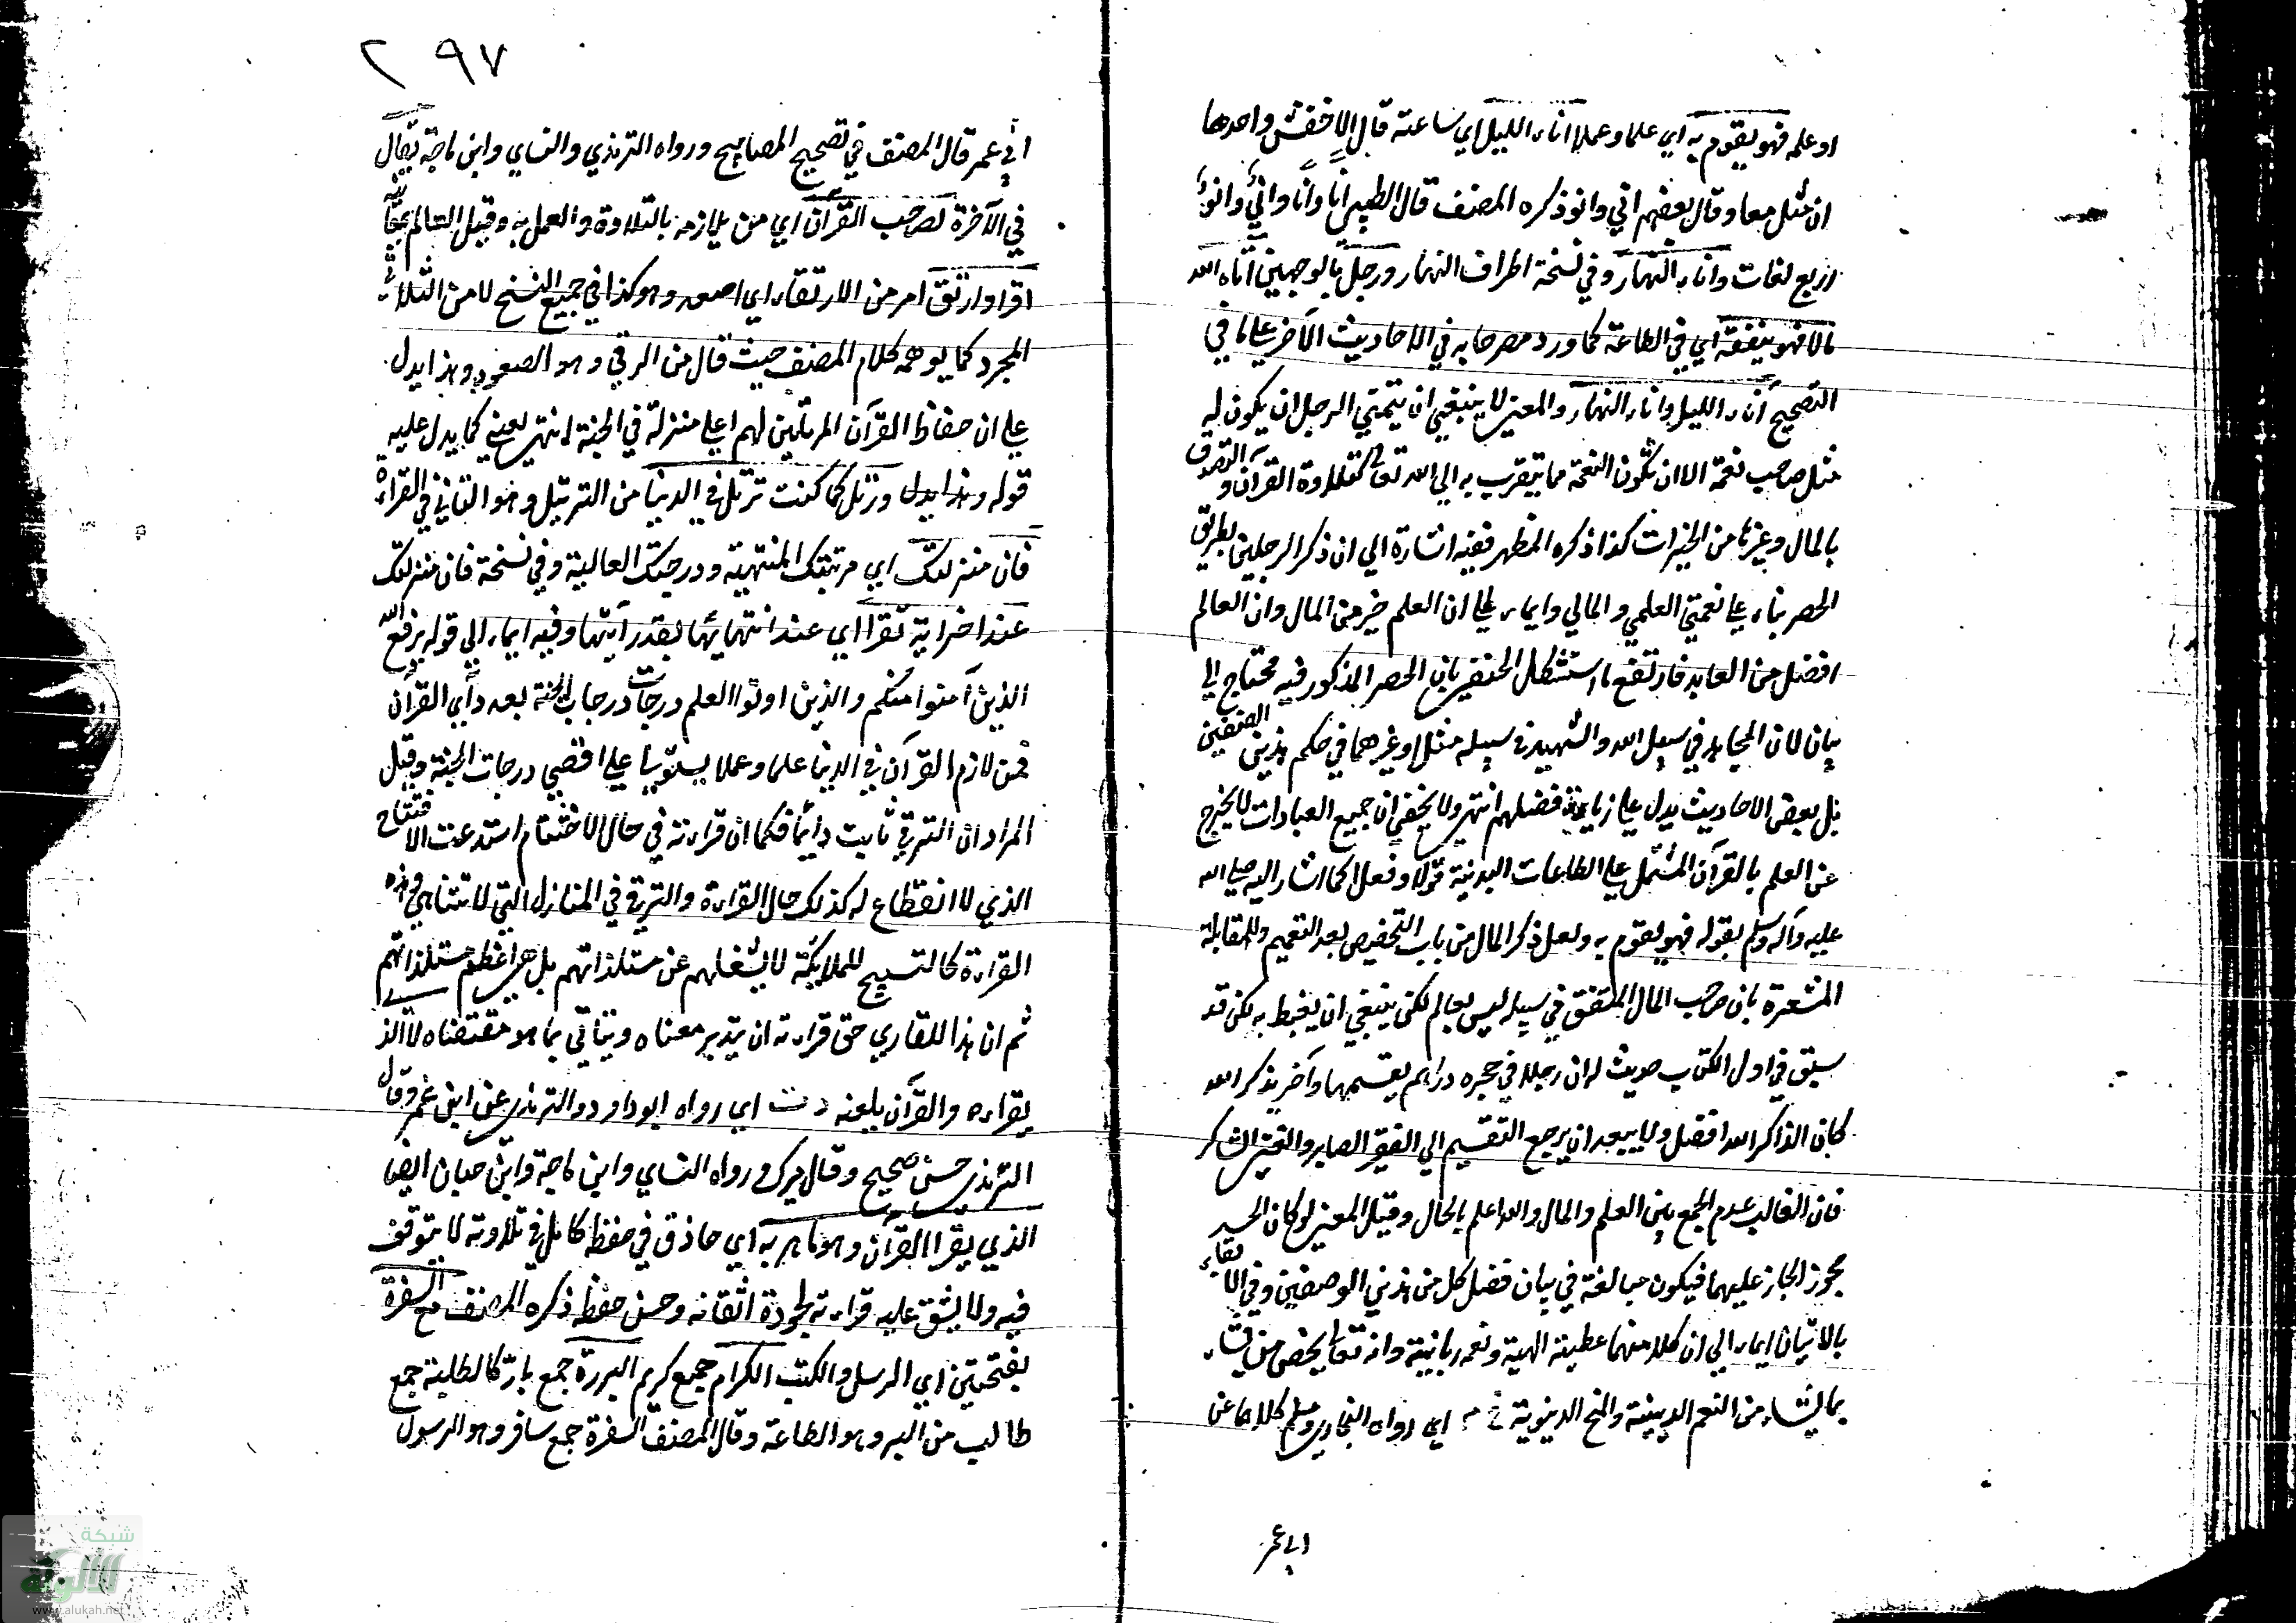 او علمه فهو يقوم به اي علما وعملا اناء الليل اي ساعته قال الاخفش واحدها
ان مثل معا وقال بعضهم اني وانو ذكره المصنف قال الطيبي انا وانا واني وانو
اربع لغات واناء النهار وفي نسخة اطراف النهار ورجل بالوجهين آتاه الله
مالا فهو ينفقه اي في الطاعة كما ورد مصرحا به في الاحاديث الآخر علي ما في
التصحيح آناء الليل واناء النهار والمعني لا ينبغي ان يتمني الرجل ان يكون له
مثل صاحب نعمة الا ان تكون النعمة مما يتقرب به الي الله تعالي كتلاوة القرآن والتصدق
بالمال وغيرها من الخيرات كذا ذكره المظهر ففيه اشارة الي ان ذكر الرجلين بطريق
الحصر بناء علي نعمتي العلمي والمالي وايماء الي ان العلم خير من المال وان العالم
افضل من العابد فارتفع ما استشكل الحنفي بان الحصر المذكور فيه محتاج الي
بيان لان المجاهد في سبيل الله والشهيد في سبيله مثلا وغيرهما في حكم هذين الصنفين
بل بعض الاحاديث يدل علي زيادة فضلهم انتهي ولا يخفي ان جميع العبادات لا يخرج
عن العلم بالقرآن المشتمل علي الطاعات البدنية قولا وفعلا كما اشار اليه صلي الله
عليه وآله وسلم بقوله فهو يقوم به ولعل ذكر المال من باب التخصيص بعد التعميم وللمقابلة
المشعرة بان صاحب المال المنفق في سبيله ليس بعالم لكن ينبغي ان يغبط به لكن قد
سبق في اول الكتاب حديث لو ان رجلا في حجره دراهم يقسمها وآخر يذكر الله
لكان الذاكر لله افضل ولا يبعد ان يرجع التقسيم الي الفقير الصابر والغني الشاكر
فان الغالب عدم الجمع بين العلم والمال والله اعلم بالحال وقيل المعني لو كان الحسد
يجوز لجاز عليهما فيكون مبالغة في بيان فضل كل من هذين الوصفين وفي الايتاء
بالاتيان ايماء الي ان كلا منهما عطية الهية ونعمه ربانية وانه تعالي يخص من يشاء
بما يشاء من النعم الدينية والمنح الدنيوية خ م اي رواه البخاري ومسلم كلاهما عن
ابي عمر
٢٩٧
ابي عمر قال المصنف في تصحيح المصابيح ورواه الترمذي والنساي وابن ماجة يقال
في الآخرة لصاحب القرآن اي من يلازمه بالتلاوة والعمل به وقيل العالم بمعانيه
اقرا وارتق امر من الارتقاء اي اصعد وهو كذا في جميع النسخ لا من الثلاثي
المجرد كما يوهمه كلام المصنف حيث قال من الرقي وهو الصعود وهذا يدل
علي ان حفاظ القرآن المرتلين لهم اعلي منزلة في الجنة انتهي يعني كما يدل عليه
قوله وهذا يدل ورتل كما كنت ترتل في الدنيا من الترتيل وهو التاني في القراءة
فان منزلتك اي مرتبتك المنتهية ودرجتك العالية وفي نسخة فان منزلك
عند اخر اية تقرا اي عند انتهايها بقدر آيتها وفيه ايماء الي قوله يرفع الله
الذين آمنوا منكم والذين اوتوا العلم درجات درجات الجنة بعدد آي القرآن
فمن لازم القرآن في الدنيا علما وعملا يستولي علي اقصي درجات الجنة وقيل
المراد ان الترقي ثابت دائما فكما ان قراءته في حال الاختتام استدعت الافتتاح
الذي لا انقطاع له كذلك حال القراءة والترقي في المنازل التي لا تتناهي وهذه
القراءة كالتسبيح للملايكة لا يشغلهم عن مستلذاتهم بل هي اعظم مستلذاتهم
ثم ان هذا للقاري حق قراءته ان يتدبر معناه وياتي بما هو مقتضاه لا الذي
يقراءه والقرآن يلعنه د ت اي رواه ابو داود والترمذي عن ابن عمر وقال
الترمذي حسن صحيح وقال ميرك ورواه النساي وابن ماجة وابن حبان ايضا
الذي يقرا القرآن وهو ماهر به اي حاذق في حفظه كامل في تلاوته لا يتوقف
فيه ولا يشق عليه قراءته لجودة اتقانه وحسن حفظه ذكره المصنف مع السفرة
بفتحتين اي الرسل والكتب الكرام جمع كريم البررة جمع بار كالطلبة جمع
طالب من البر وهو الطاعة وقال المصنف السفرة جمع سافر وهو الرسول
شبكة
الألوكة
www.alukah.net